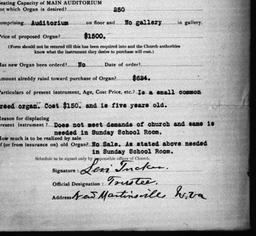 Seating Capacity of MAIN AUDITORIUM
for which Organ is desired? 250
Comprising Auditorium on floor and No gallery in gallery.
Price of proposed Organ? $1500.
(Form should not be returned till this has been required into and the Church authorities
know what the instrument they desire to purchase will cost.)
Has new Organ been ordered? No Date of order?
Amount already raised toward purchase of Organ? $634.
Particulars of present instrument, Age, Cost Price, etc.? Is a small common
reed organ. Cost $150. and is five years old.
Reason for displacing
present instrument? Does not meet demands of church and same is
needed in Sunday School Room.
How much is to be realized by sale
of (or from insurance on) old Organ? No Sale. As stated above needed
in Sunday School Room.
Schedule to be signed only by responsible officers of Church.
Signature: Levi Tucker
Official Designation: Trustee.
Address: New Martinsville W. Va